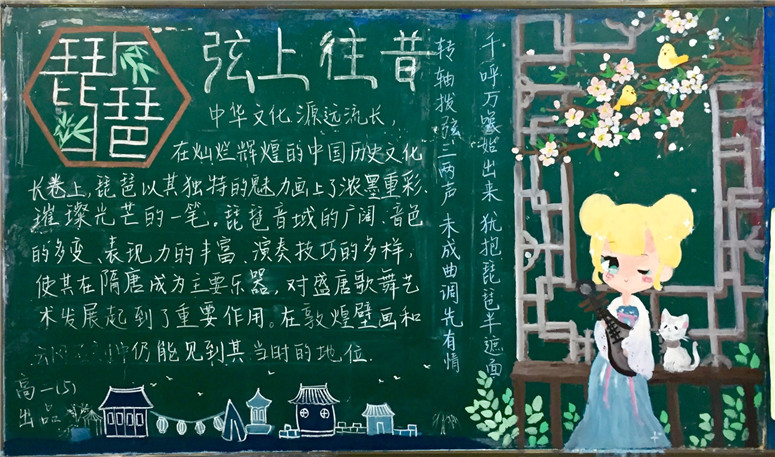 琵琶
弦上往昔
中华文化源远流长，
在灿烂辉煌的中国历史文化
长卷上，琵琶以其独特的魅力画上了浓墨重彩、
璀璨光芒的一笔。琵琶音域的广阔、音色
的多变、表现力的丰富、演奏技巧的多样，
使其在隋唐成为主要乐器，对盛唐歌舞艺
术发展起到了重要作用。在敦煌壁画和
仍能见到其当时的地位.
高一(5)
出品
千呼万唤始出来 犹抱琵琶半遮面
转轴拨弦三两声 未成曲调先有情